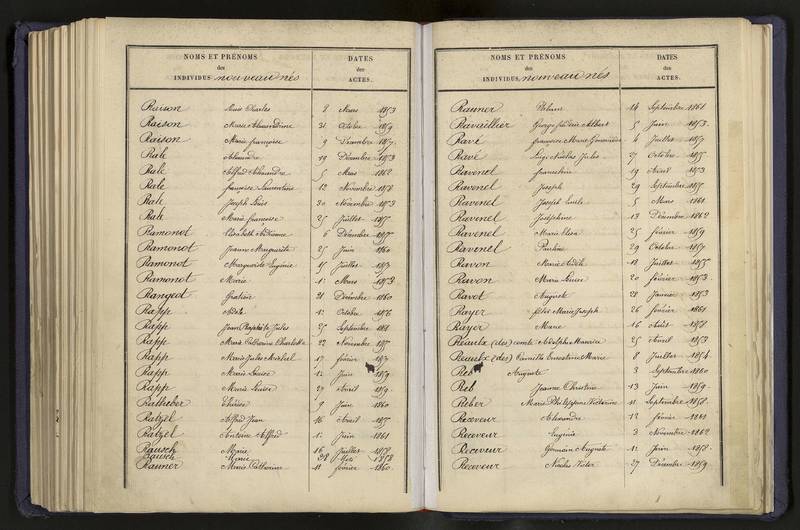 NOMS ET PRÉNOMS
des
INDIVIDUS nouveau nés
DATES
des
ACTES.
Raison Charles 8 Mars 1853
Raison Marie Alexandrine 31 Octobre 1859
Raison Marie françoise 9 Décembre 1857
Rale Alexandre 19 Décembre 1853
Rale Alfred Alexandre 5 Mars 1862
Rale françoise Laurentine 12 Novembre 1858
Rale Joseph Louis 30 Novembre 1853
Rale Marie françoise 25 Juillet 1855
Ramonot Elisabeth 6 Décembre 1855
Ramonot Jeanne Marguerite 25 Juin 1860
Ramonot Marguerite Eugénie 5 Juillet 1853
Ramonot Marie 1er Mars 1858
Rangeot Gratien 21 Décembre 1860
Rapp Adèle 1er Octobre 1856
Rapp Jean Baptiste Jules 25 Septembre 1861
Rapp Marie Catherine Charlotte 22 Novembre 1855
Rapp Marie Jules Michel 17 février 1853
Rapp Marie Louise 12 Juin 1859
Rapp Marie Louise 27 Avril 1859
Ratheber Thérèse 9 Juin 1860
Ratzel Alfred Jean 16 Avril 1855
Ratzel Antoine Alfred 1er Juin 1861
Rausch Marie 16 Juillet 1858
Rausch Marie 28 1858
Rauner Marie Catherine 11 février 1860
NOMS ET PRÉNOMS
des
INDIVIDUS nouveau nés
DATES
des
ACTES.
Rauner 14 Septembre 1861
Ravaillier George frédéric Albert 5 Juin 1853
Ravé françoise Marie 4 Juillet 1857
Ravé Nicolas Jules 27 Octobre 1855
Ravenel 19 Avril 1853
Ravenel Joseph 29 Septembre 1855
Ravenel Joseph Emile 5 Mars 1861
Ravenel Joséphine 13 Décembre 1862
Ravenel Marie Elisa 25 février 1859
Ravenel Pauline 29 Octobre 1857
Ravon Marie Adèle 18 Juillet 1855
Ravon Marie Louise 20 février 1853
Ravot Auguste 28 Janvier 1853
Rayer Marie Joseph 26 février 1861
Rayer Marie 16 Août 1858
Réaulx (des) comte Adolphe Maurice 25 Avril 1853
Réaulx (des) Camille Ernestine Marie 8 Juillet 1854
Reb Auguste 3 Septembre 1860
Reb Jeanne Christine 13 Juin 1859
Reber Marie Philippine 11 Septembre 1858
Receveur Alexandre 12 février 1861
Receveur Eugénie 3 Novembre 1862
Receveur Germain Auguste 11 Juin 1858
Receveur Nicolas Victor 27 Décembre 1859